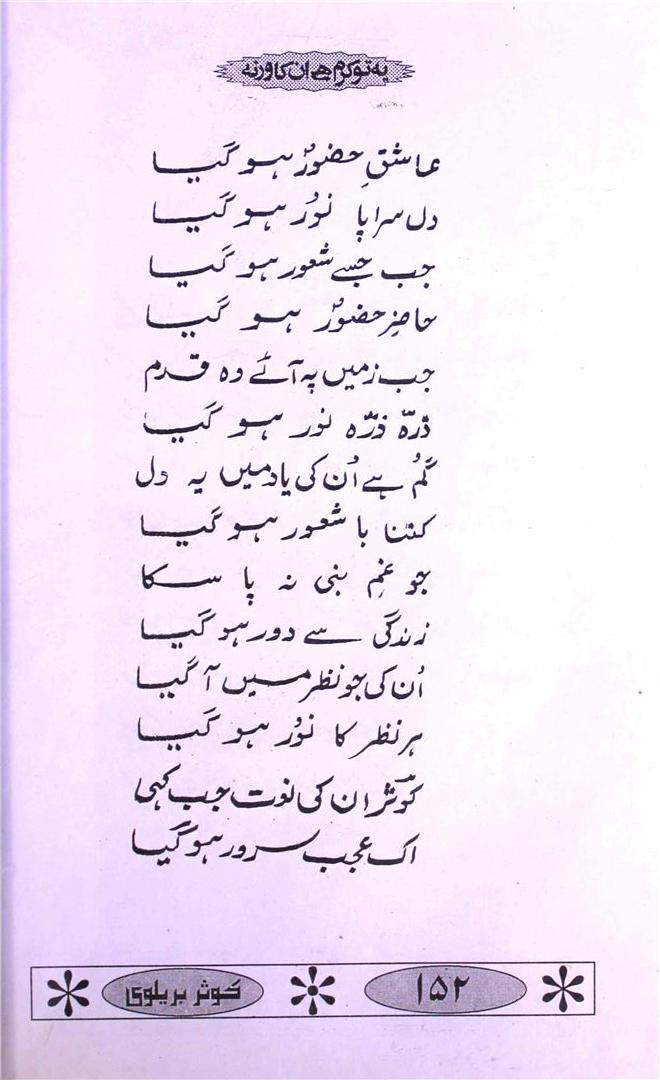 یہ تو کرم ہے ان کا ورنہ
عاشقِ حضورؐ ہو گیا
دل سراپا نُور ہو گیا
جب جسے شعور ہو گیا
حاضرِ حضورؐ ہو گیا
جب زمیں پہ آئے وہ قدم
ذرّہ ذرّہ نور ہو گیا
گُم ہے اُن کی یاد میں یہ دل
کتنا با شعور ہو گیا
جو غمِ نبی نہ پا سکا
زندگی سے دور ہو گیا
اُن کی جو نظر میں آ گیا
ہر نظر کا نُور ہو گیا
کوثرؔ ان کی نعت جب کہی
اک عجب سرور ہو گیا
۱۵۲
کوثر بریلوی